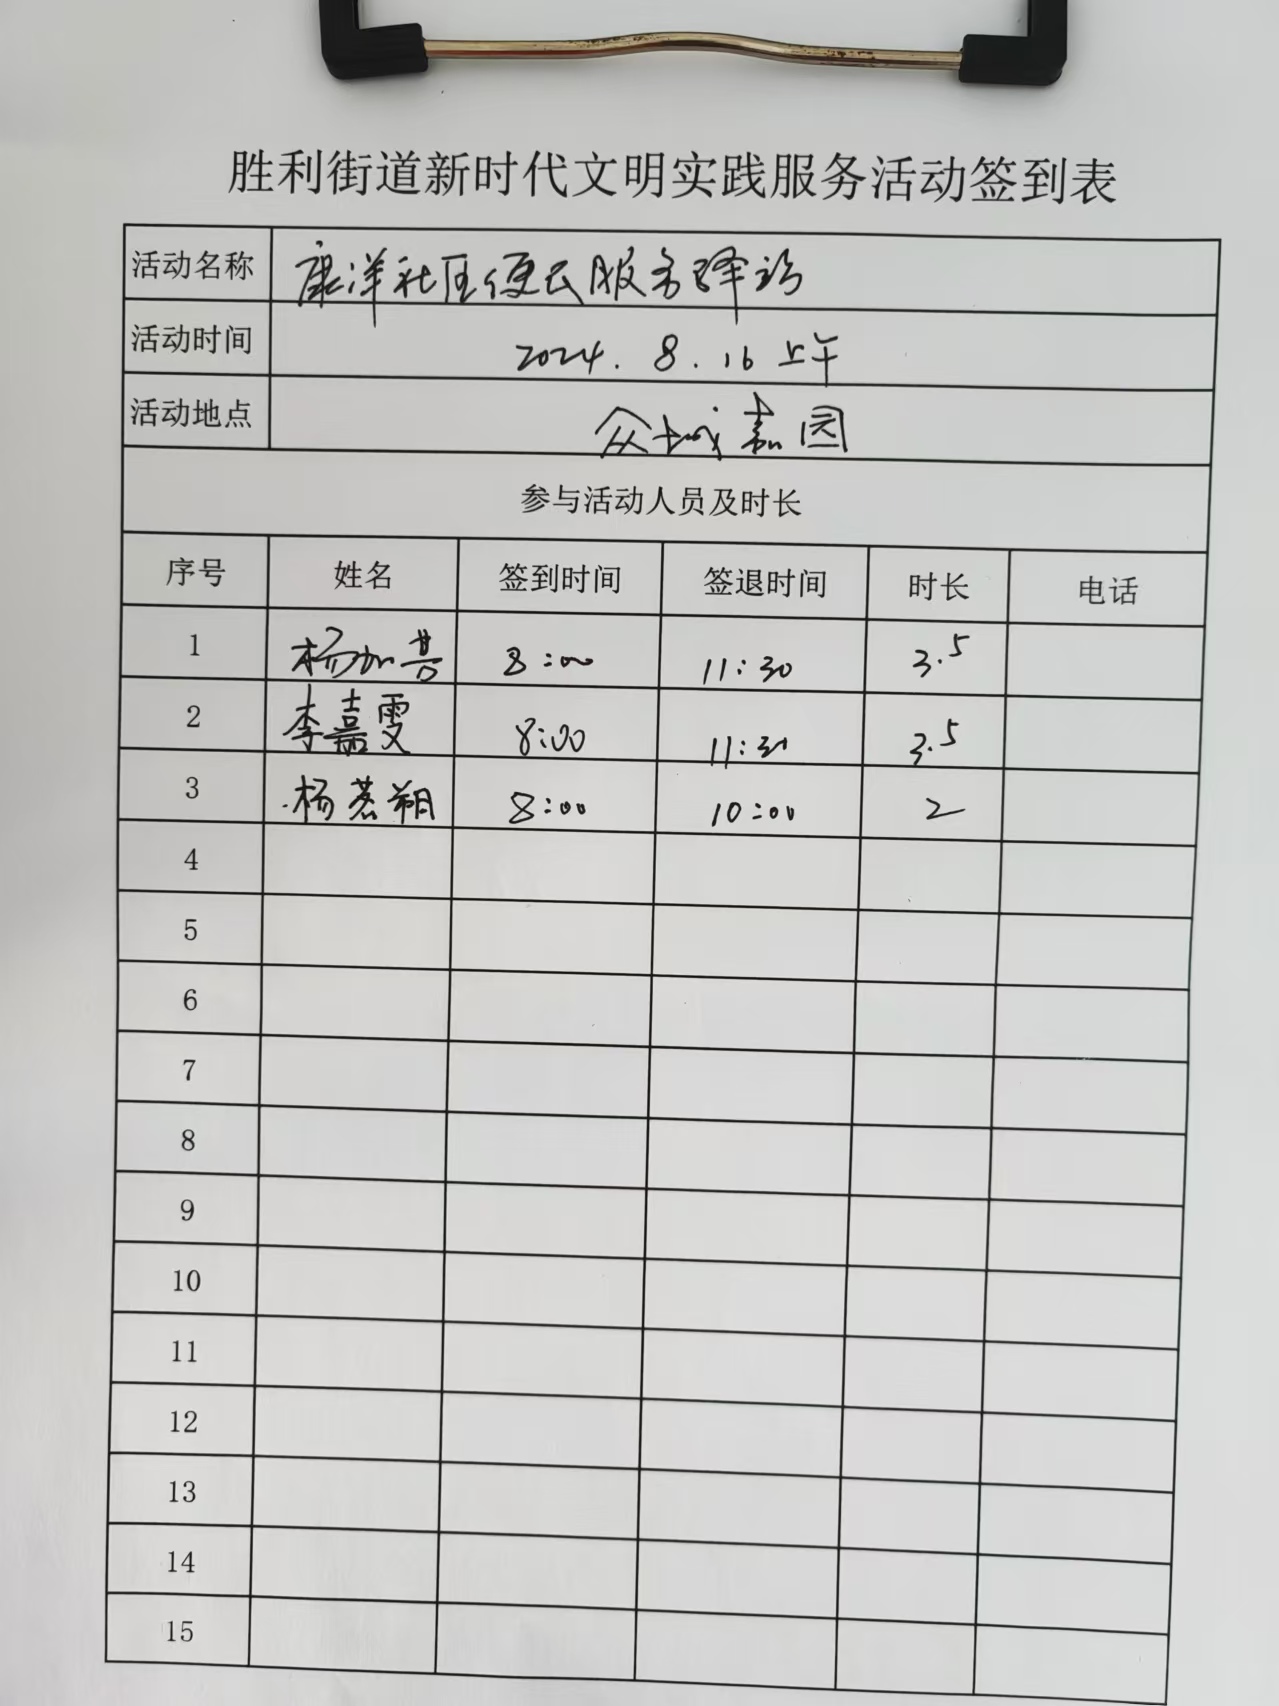 胜利街道新时代文明实践服务活动签到表
活动名称 康洋社区便民服务驿站
活动时间 2024.8.16上午
活动地点 众城嘉园
参与活动人员及时长
序号 姓名 签到时间 签退时间 时长 电话
1 杨加其 8:00 11:30 3.5
2 李嘉雯 8:00 11:30 3.5
3 杨茗朔 8:00 10:00 2
4
5
6
7
8
9
10
11
12
13
14
15